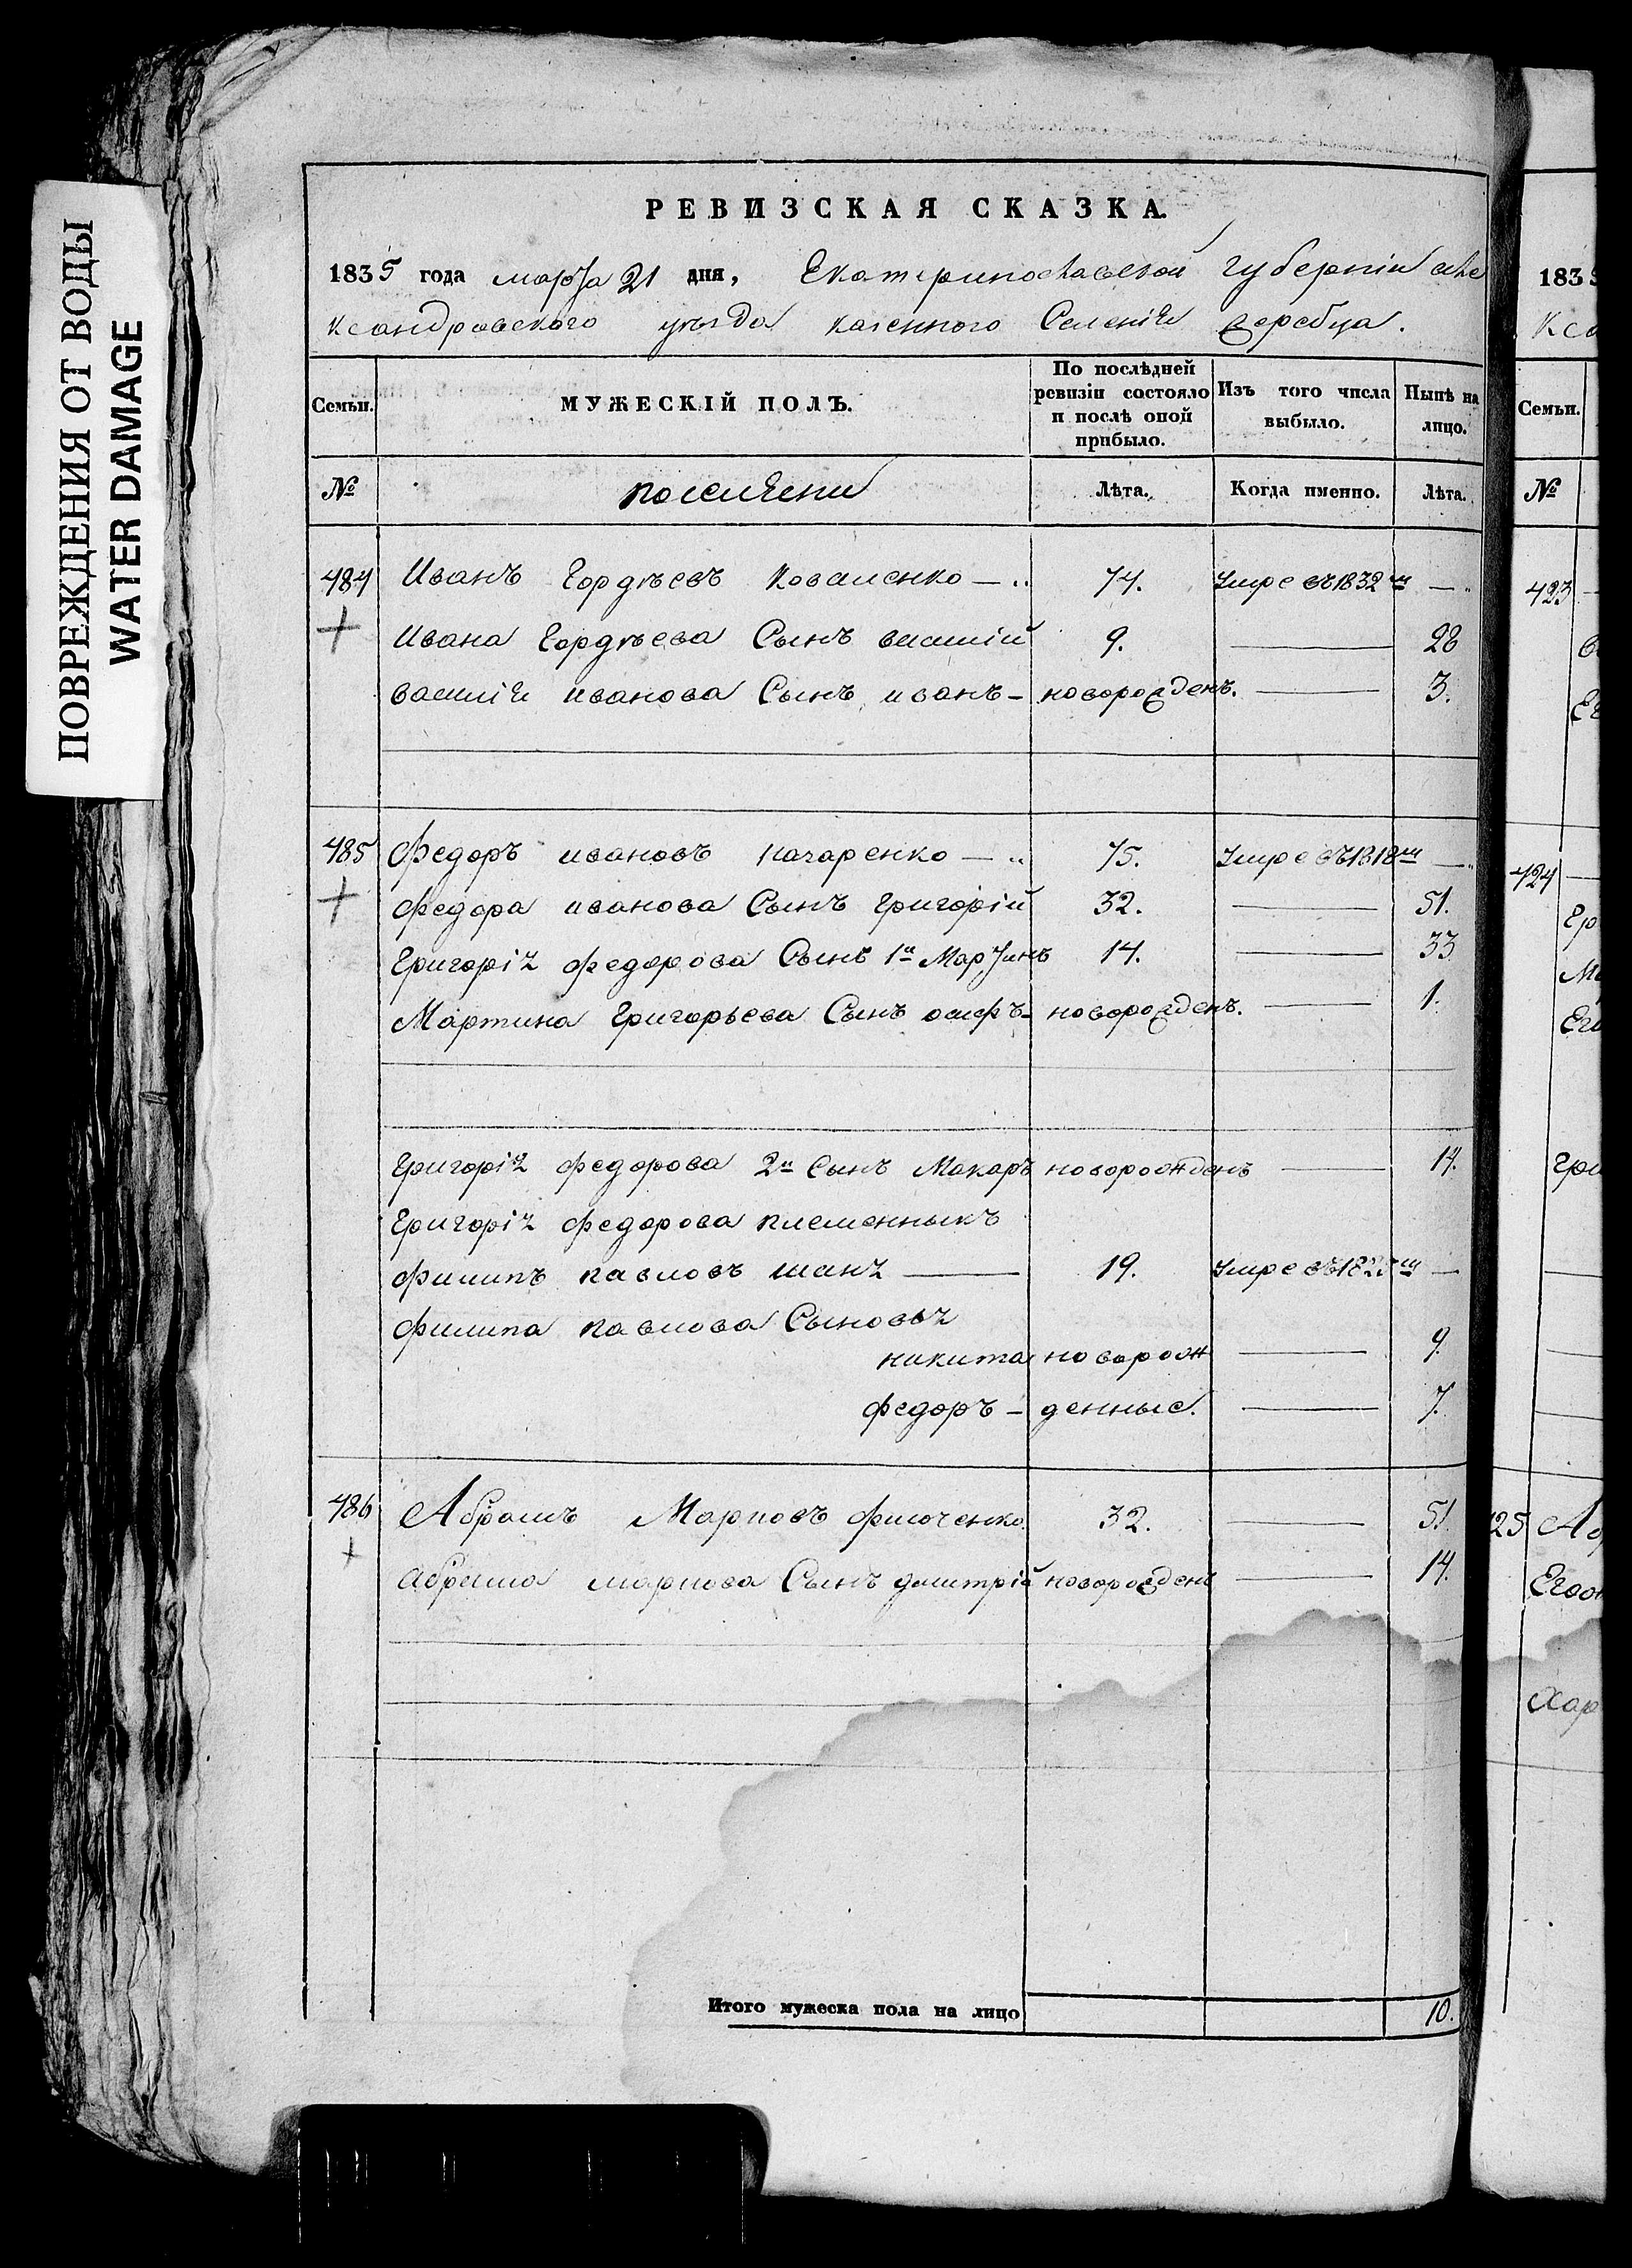 ПОВРЕЖДЕНИЯ ОТ ВОДЫ
WATER DAMAGE
РЕВИЗСКАЯ СКАЗКА.
1835 года марта 21 дня, Екатеринославской губернии але
ксандровского уѣзда казенного Селения жеребца.
Семьи. МУЖЕСКІЙ ПОЛЪ. По послѣдней ревизіи состояло и послѣ оной прибыло. Изъ того числа выбыло. Нынѣ на лицо.
№ Лѣта. Когда именно. Лѣта.
484 Иванъ Гордѣевъ Коваленко — 74. Умре въ 1832 м —
Ивана Гордѣева Сынъ василій 9. — 28
василія иванова Сынъ иванъ — новорожденъ. — 3.
485 Федоръ ивановъ — 75. Умре въ 1818 м —
федора иванова Сынъ григорій 32. — 51.
Григорія федорова Сынъ 1й Мартинъ 14. — 33
Мартина Григорьева Сынъ осифъ — новорожденъ. — 1.
Григорія федорова 2й Сынъ Макаръ новорожденъ — 14.
Григорія федорова племенникъ
филипъ павловъ — 19. Умре въ м —
филипа павлова Сыновья
никита новорож — 9.
федоръ — денные. — 7.
486 Абрамъ Марковъ 32. — 51.
абрама маркова Сынъ дмитрій новорожденъ — 14.
Итого мужеска пола на лицо 10.
1835
Ксо
Семьи.
№
423
424
Гри
Ер
Его
125
Хар